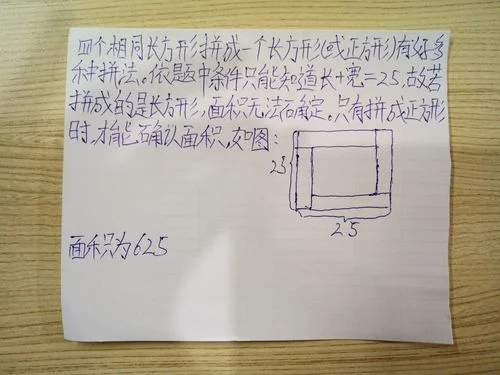 四个相同长方形拼成一个长方形(或正方形)有好多
种拼法。依题中条件只能知道长+宽=25,故若
拼成的是长方形,面积无法确定。只有拼成正方形
时,才能确认面积,如图:
25
25
面积为625